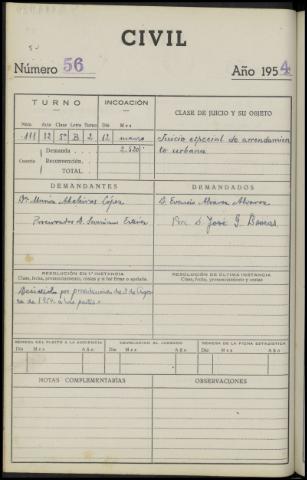 CIVIL
Número 56
Año 1954
TURNO
INCOACIÓN
CLASE DE JUICIO Y SU OBJETO
Núm. Año Clase Letra Turno Día Mes
111 12 5º B 2 12 marzo
Juicio especial de arrendamien
to urbano
Cuantía
Demanda 2.520
Reconvención
TOTAL
DEMANDANTES
DEMANDADOS
Dª María
D. Evaristo Alvarez Alvarez
Procurador D.
Pro. D. José G.
RESOLUCIÓN EN 1ª INSTANCIA
Clase, fecha, pronunciamiento, costas y si fué firme o apelada.
RESOLUCIÓN DE ÚLTIMA INSTANCIA
Clase, fecha, pronunciamiento y costas
por providencia de 3 de
de 1954
REMESA DEL PLEITO A LA AUDIENCIA
DEVOLUCIÓN AL JUZGADO
REMESA DE LA FICHA ESTADÍSTICA
Día Mes Año
Día Mes Año
Día Mes Año
NOTAS COMPLEMENTARIAS
OBSERVACIONES